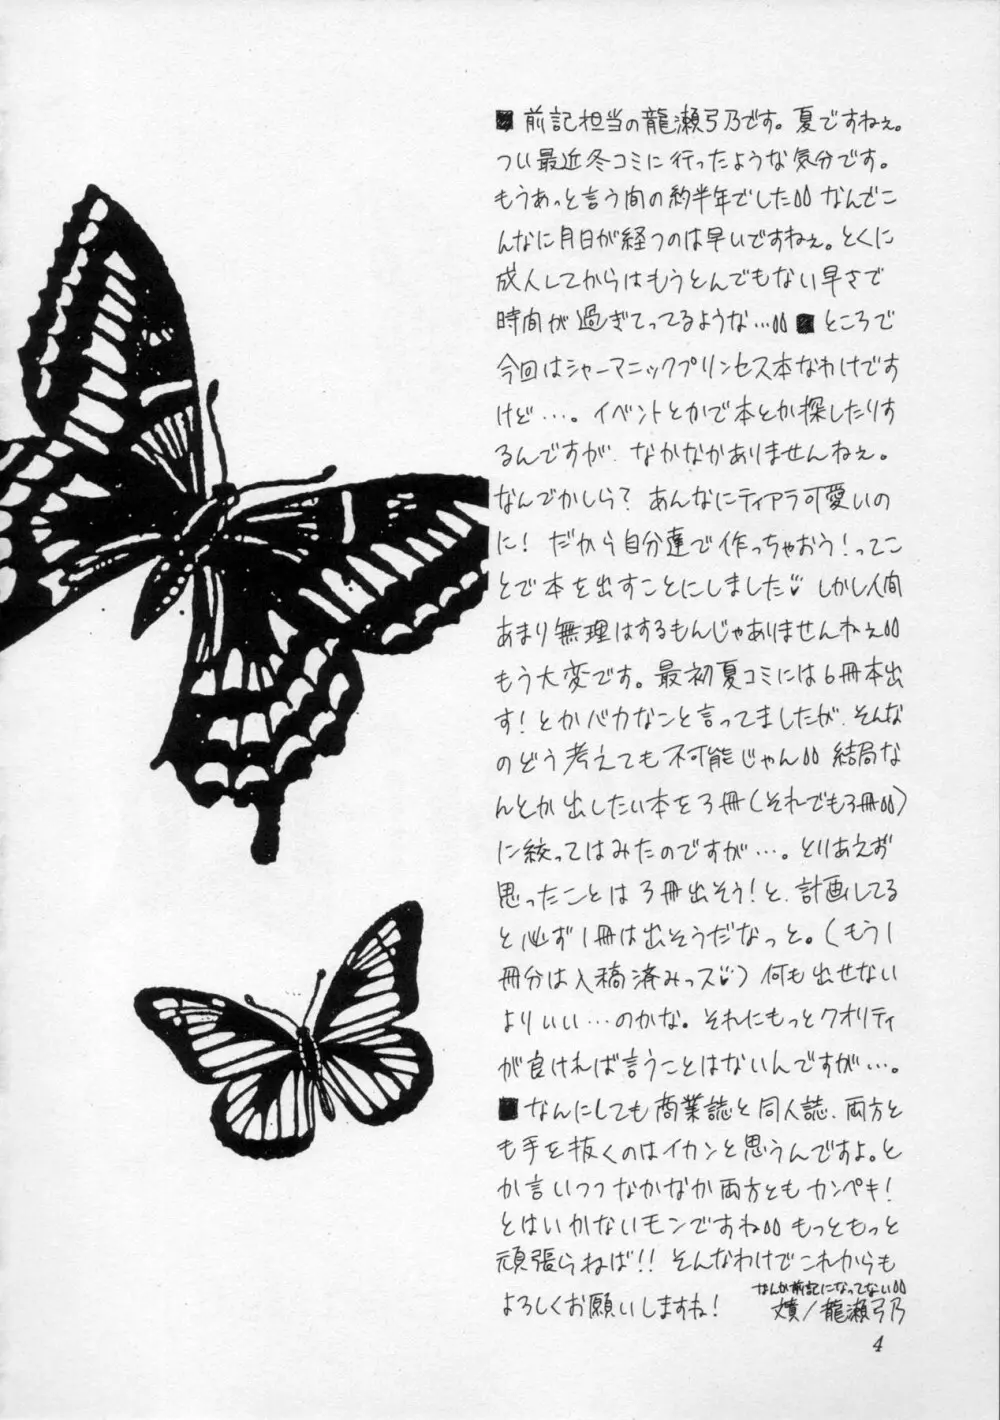 ■前記担当の龍瀬弓乃です。夏ですねぇ。
つい最近冬コミに行ったような気分です。
もうあっと言う間の約半年でした なんでこ
んなに月日が経つのは早いですねぇ。とくに
成人してからはもうとんでもない早さで
時間が過ぎてってるような… ■ところで
今回はシャーマニックプリンセス本なわけです
けど…。イベントとかで本とか探したりす
るんですが、なかなかありませんねぇ。
なんでかしら?あんなにティアラ可愛いの
に!だから自分達で作っちゃおう!ってこ
とで本を出すことにしました♡しかし人間
あまり無理はするもんじゃありませんねぇ
もう大変です。最初夏コミには6冊本出
す!とかバカなこと言ってましたが、そんな
のどう考えても不可能じゃん 結局な
んとか出したい本を3冊(それでも3冊)
に絞ってはみたのですが…。とりあえず
思ったことは3冊出そう!と、計画してる
と必ず1冊は出そうだなっと。(もう1
冊分は入稿済みっス♡)何も出せない
よりいい…のかな。それにもっとクオリティ
が良ければ言うことはないんですが…。
■なんにしても商業誌と同人誌、両方と
も手を抜くのはイカンと思うんですよ。と
か言いつつなかなか両方ともカンペキ!
とはいかないモンですね もっともっと
頑張らねば!!そんなわけでこれからも
よろしくお願いしますね!
なんか前記になってない
/龍瀬弓乃
4